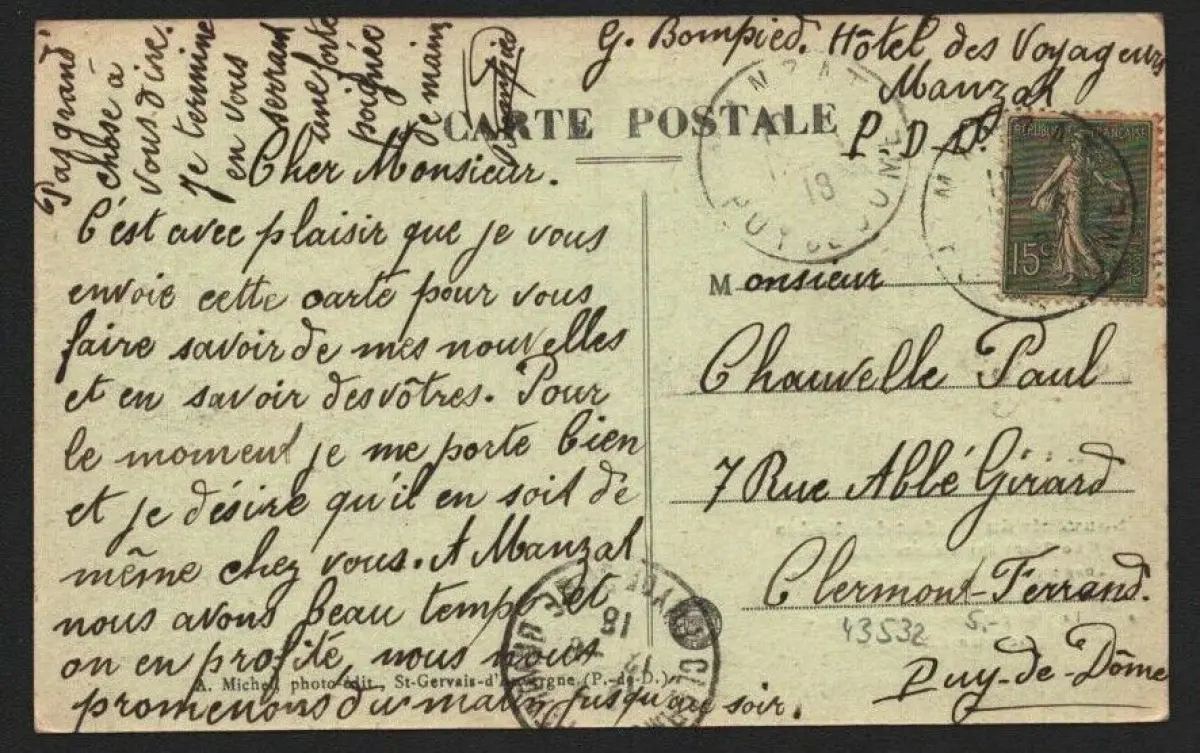 G. Bompied. Hôtel des Voyageurs
Manzat
P-D-D.
CARTE POSTALE
Cher Monsieur.
C'est avec plaisir que je vous
envoie cette carte pour vous
faire savoir de mes nouvelles
et en savoir des vôtres. Pour
le moment je me porte bien
et je désire qu'il en soit de
même chez vous. A Manzat
nous avons beau temps et
on en profite, nous nous
promenons du matin jusqu'au soir.
Pas grand
chose à
vous dire.
Je termine
en vous
serrant
une forte
poignée
de main
Bompied
A. Michel, photo-édit., St-Gervais-d'Auvergne (P.-de-D.)
Monsieur
Chauvelle Paul
7 Rue Abbé Girard
Clermont-Ferrand.
Puy-de-Dôme
43532
5.-
REPUBLIQUE FRANÇAISE
15c
MANZAT
18
PUY DE DOME